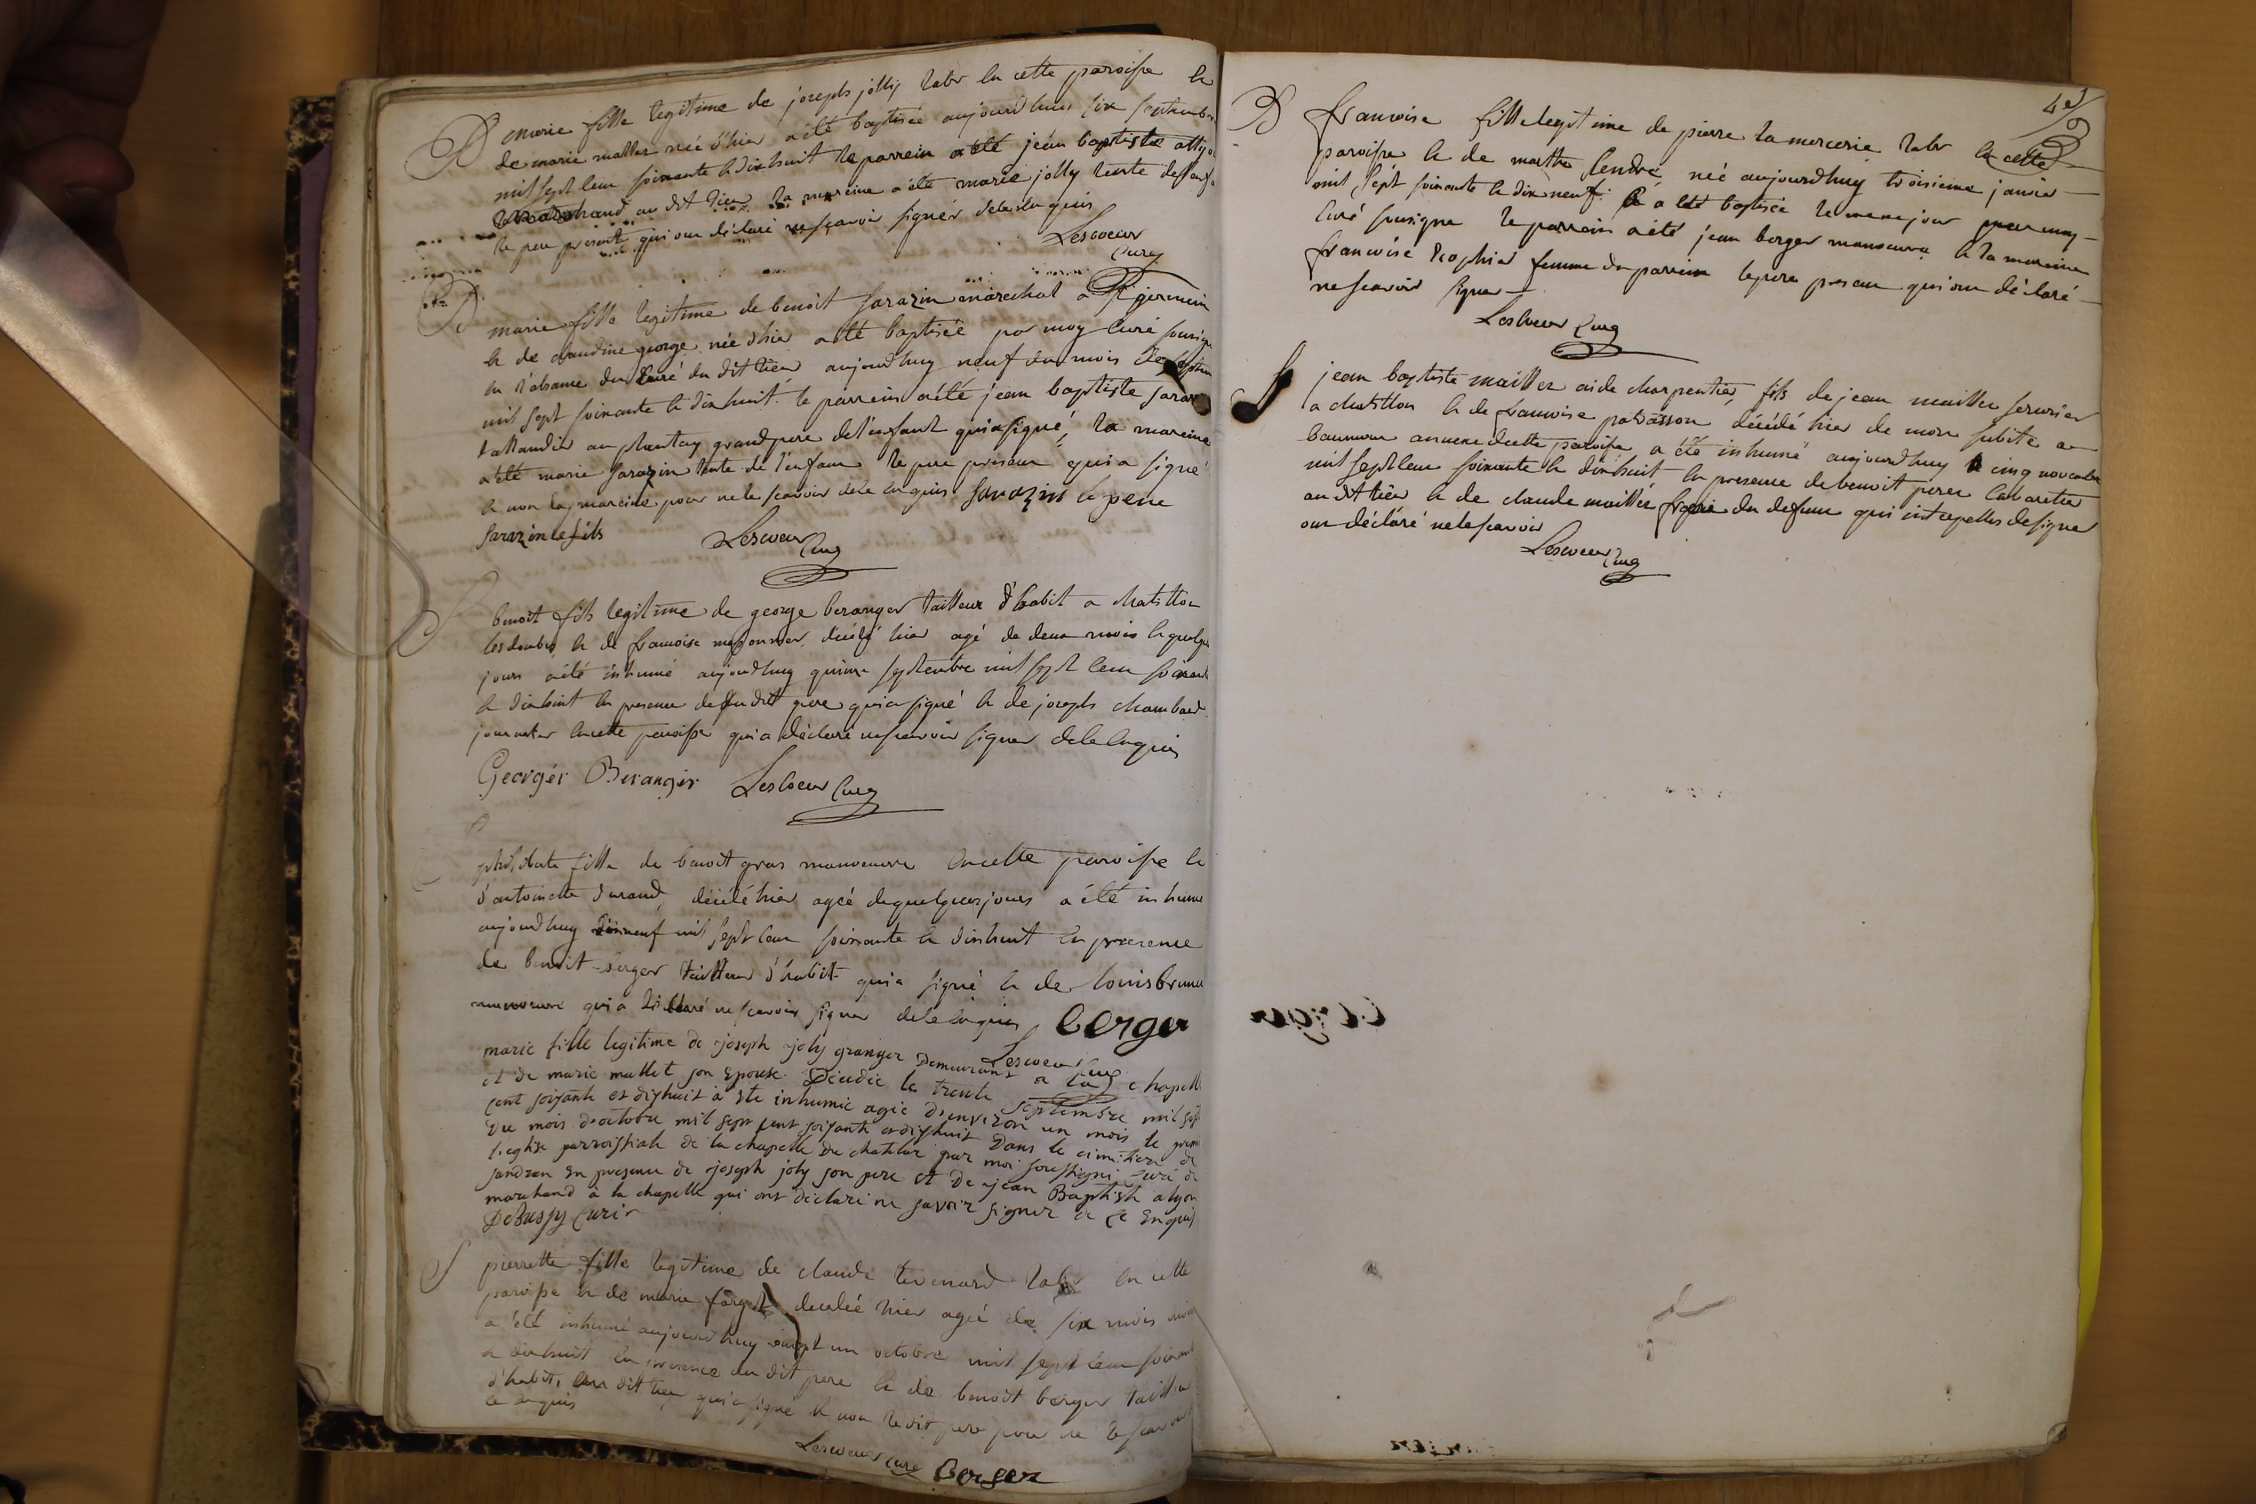 B
marie fille legitime de joseph jolly labr en cette paroisse et
de marie mallet née d'hier a été baptisée aujourd'huy six septembre
mil sept cent soixante et dix huit le parrein a été jean baptiste
marchand au dit lieu la mareine a été marie jolly tente de l'enfant
le pere present qui ont déclaré ne scavoir signer de ce enquis
Lescoeur
Curé
B
marie fille legitime de benoit sarazin maréchal a St germain
et de claudine george née d'hier a été baptisée par moy curé sousigné
en l'absance du curé du dit lieu aujourd'huy neuf du mois de septembre
mil sept soixante et dix huit. le parrein a été jean baptiste sarazin
taillandier au plantay grand pere de l'enfant qui a signé, la mareine
a été marie sarazin tente de l'enfant le pere present qui a signé
et non la mareine pour ne le scavoir de ce enquis sarazin le pere
sarazin le fils
Lescoeur Curé
S
benoit fils legitime de george beranger tailleur d'habit a chatillon
les dombes et de francoise décédé hier agé de deux mois et quelque
jours a été inhumé aujourd'huy quinze septembre mil sept cent soixante
et dix huit en presence du dit pere qui a signé et de joseph chambard
journalier en cette paroisse qui a déclaré ne scavoir signer de ce enquis
Georgér Berangér
Lescoeur Curé
philiberte fille de benoit gras manoeuvre en cette paroisse et
d'antoinette durand, décédé hier agée de quelques jours a été inhumé
aujourd'huy dixneuf mil sept cent soixante et dix huit en presence
de benoit berger tailleur d'habit qui a signé et de louis brunet
manoeuvre qui a déclaré ne scavoir signer de ce enquis berger
Lescoeur Curé
marie fille legitime de joseph joly granger demeurant a la chapelle
et de marie mallet son Epouse. Décédée le trente septembre mil sept
cent soixante et dixhuit a été inhumée agée d'environ un mois le premier
du mois d'octobre mil sept cent soixante et dixhuit dans le cimetiere de
l'eglise parroissiale de la chapelle du chatelar par moi soussigné curé de
sandran En presence de joseph joly son pere et de jean Baptiste alyon
marchand à la chapelle qui ont déclaré ne savoir signer de ce Enquis
DeBussy Curé
S
pierrette fille legitime de claude tevenard labr en cette
paroisse et de marie decedée hier agée de six mois
a été inhumé aujourd'huy vingt un octobre mil sept cent soixante
et dixhuit en presence du dit pere et de benoit berger tailleur
d'habits au dit lieu qui a signé et non le dit pere pour ne le scavoir
ce enquis
Lescoeur Curé berger
B
francoise fille legitime de pierre la mercerie labr en cette
paroisse et de marthe née aujourd'huy troisieme janvier
mil sept soixante et dix neuf. et a été baptisée le meme jour par moy
curé sousigné le parrein a été jean berger manoeuvre et la mareine
francoise femme du parrein le pere present qui ont déclaré
ne scavoir signer
Lescoeur Curé
S
jean baptiste maillet aide charpentier, fils de jean maillet serurier
a chatillon et de francoise décédé hier de mort subite a
beaumont annexe de cette paroisse a été inhumé aujourd'huy le cinq novembre
mil sept cent soixante et dixhuit en presence de benoit perret cabaretier
au dit lieu et de claude maillet frere du defunt qui interpellés de signer
ont déclaré ne le scavoir
Lescoeur Curé